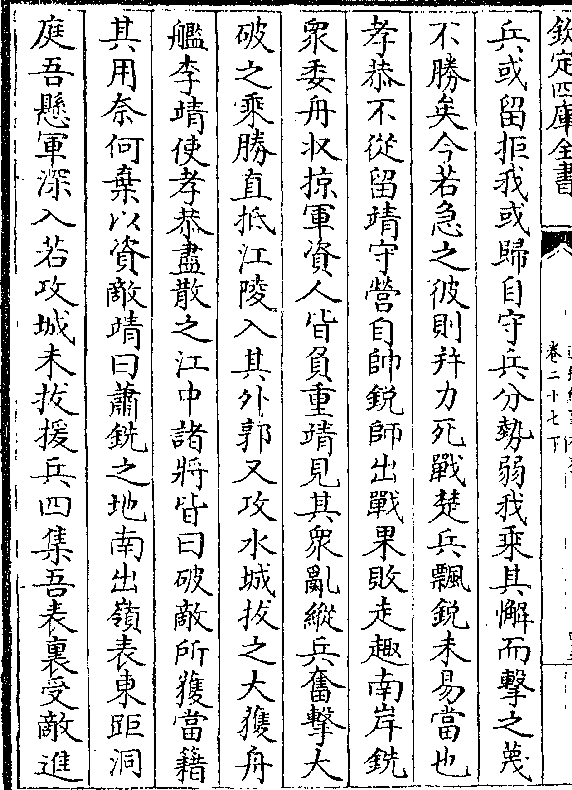 欽定四庫全書
卷二十七下
兵或留拒我或歸自守兵分勢弱我乘其懈而擊之蔑
不勝矣今若急之彼則并力死戰楚兵飄銳未易當也
孝恭不從留靖守營自帥銳師出戰果敗走趣南岸銑
衆委舟收掠軍資人皆負重靖見其衆亂縱兵奮擊大
破之乘勝直抵江陵入其外郭又攻水城拔之大獲舟
艦李靖使孝恭盡散之江中諸將皆曰破敵所獲當籍
其用奈何棄以資敵靖曰蕭銑之地南出嶺表東距洞
庭吾懸軍深入若攻城未拔援兵四集吾表裏受敵進